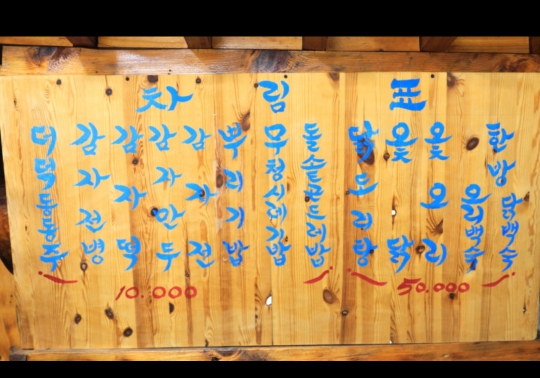 차림표
더덕동동주
감자전병
감자떡
감자만두
감자전
뿌리기밥
무청시레기밥
돌솥곤드레밥
닭도리탕
옻닭
옻오리
오리백숙
한방닭백숙
10.000
50.000